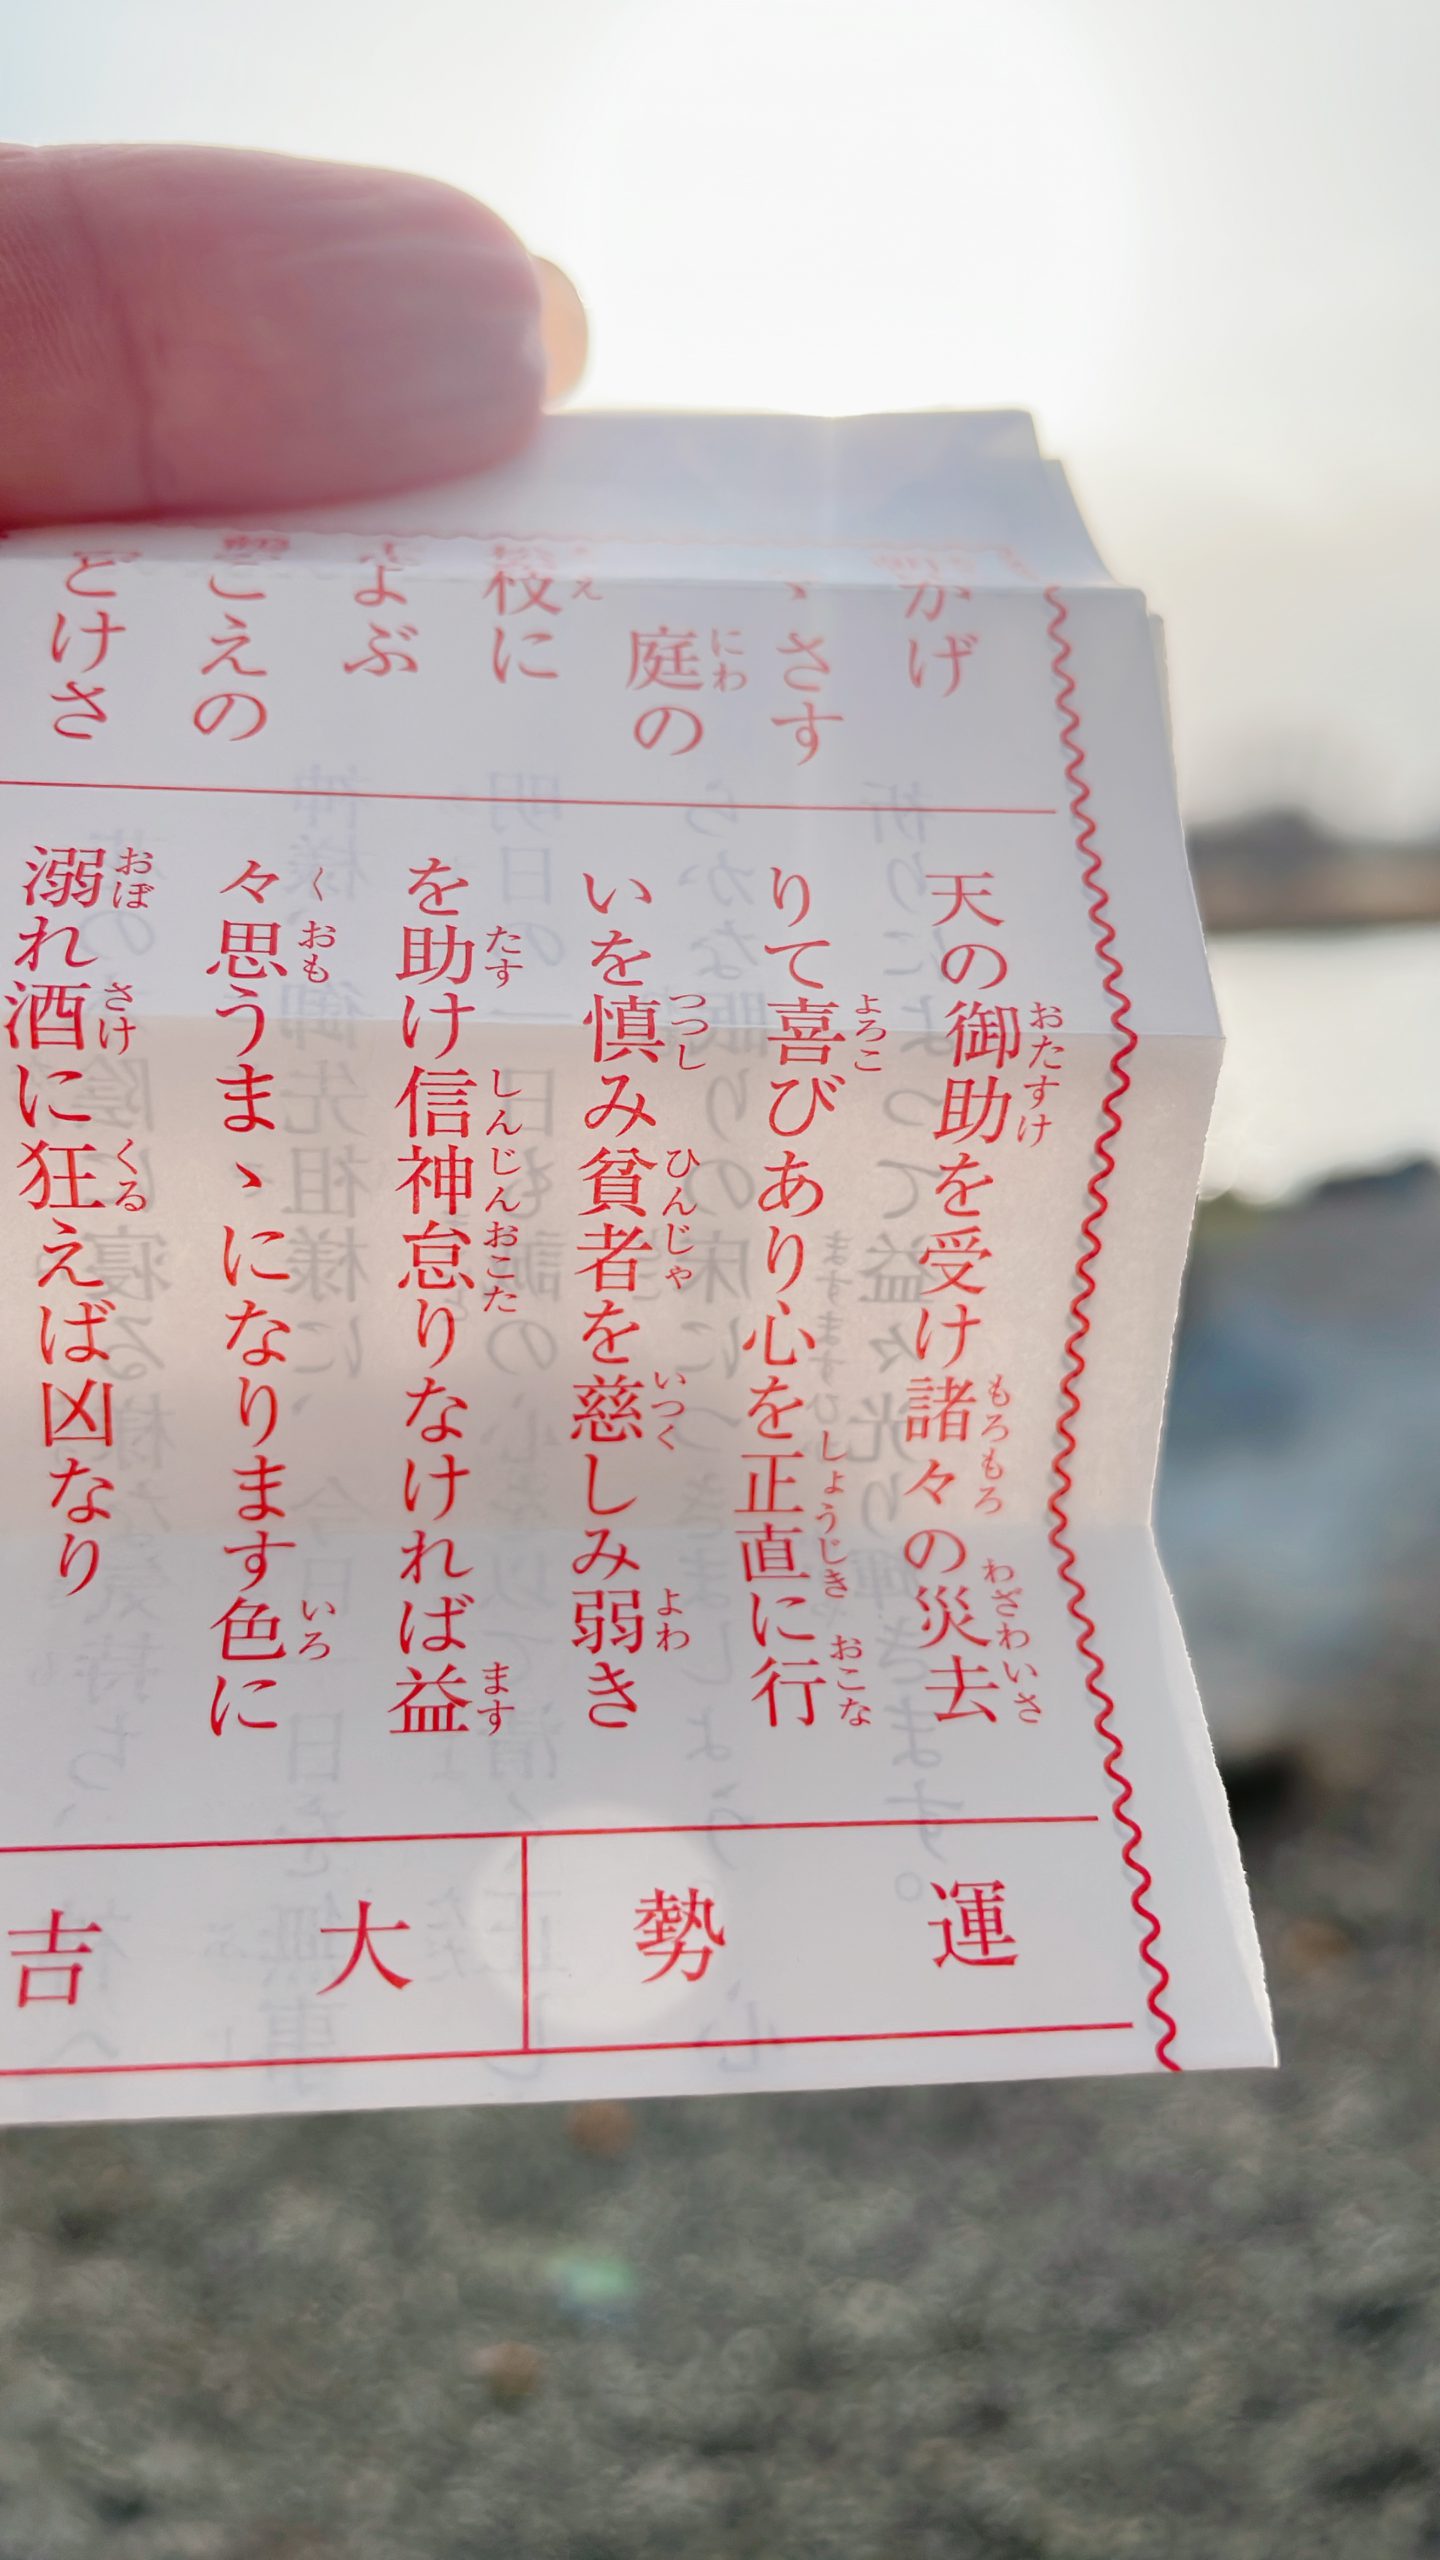 かげ
さす
庭の
枝に
よぶ
こえの
どけさ
天の御助を受け諸々の災去
りて喜びあり心を正直に行
いを慎み貧者を慈しみ弱き
を助け信神怠りなければ益
々思うまゝになります色に
溺れ酒に狂えば凶なり
運勢 大吉